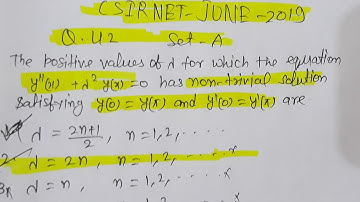 CSIR NET - JUNE - 2019
Q. 42 Set - A
The positive values of λ for which the equation
y''(x) + λ² y(x) = 0 has non-trivial solution
satisfying y(0) = y(π) and y'(0) = y'(π) are
λ = 2n+1/2, n = 1, 2, .....
2. λ = 2n, n = 1, 2, .....
3. λ = n, n = 1, 2, .....